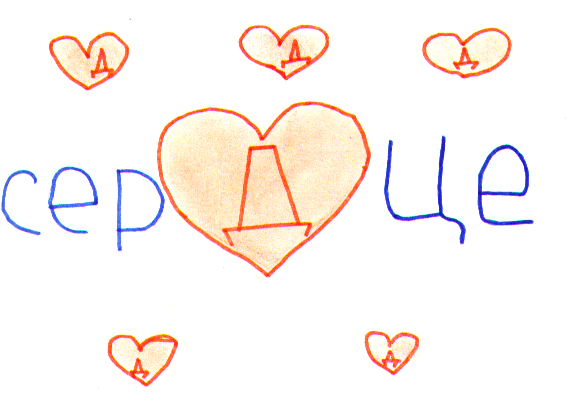 Д Д Д
серДце
Д Д